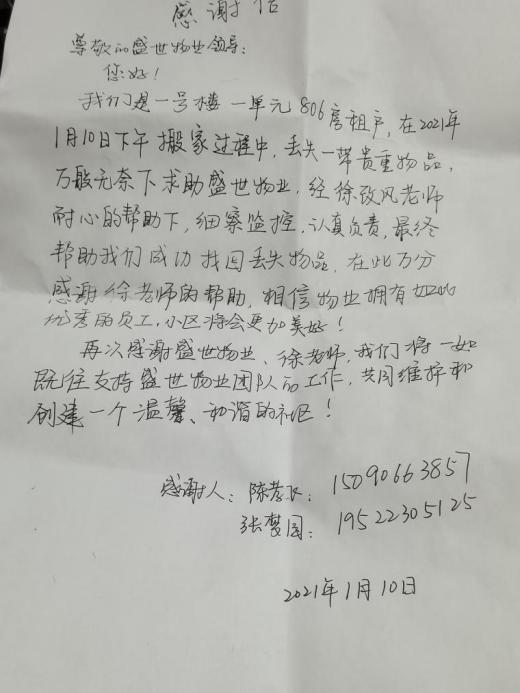 感谢信
尊敬的盛世物业领导：
您好！
我们是一号楼一单元806房租户，在2021年
1月10日下午搬家过程中，丢失一带贵重物品，
万般无奈下求助盛世物业，经徐改风老师
耐心的帮助下，细察监控，认真负责，最终
帮助我们成功找回丢失物品，在此万分
感谢徐老师的帮助，相信物业拥有如此
优秀的员工，小区将会更加美好！
再次感谢盛世物业、徐老师，我们将一如
既往支持盛世物业团队的工作，共同维护和
创建一个温馨、和谐的社区！
感谢人：陈孝飞：15090663857
张梦园：19522305125
2021年1月10日